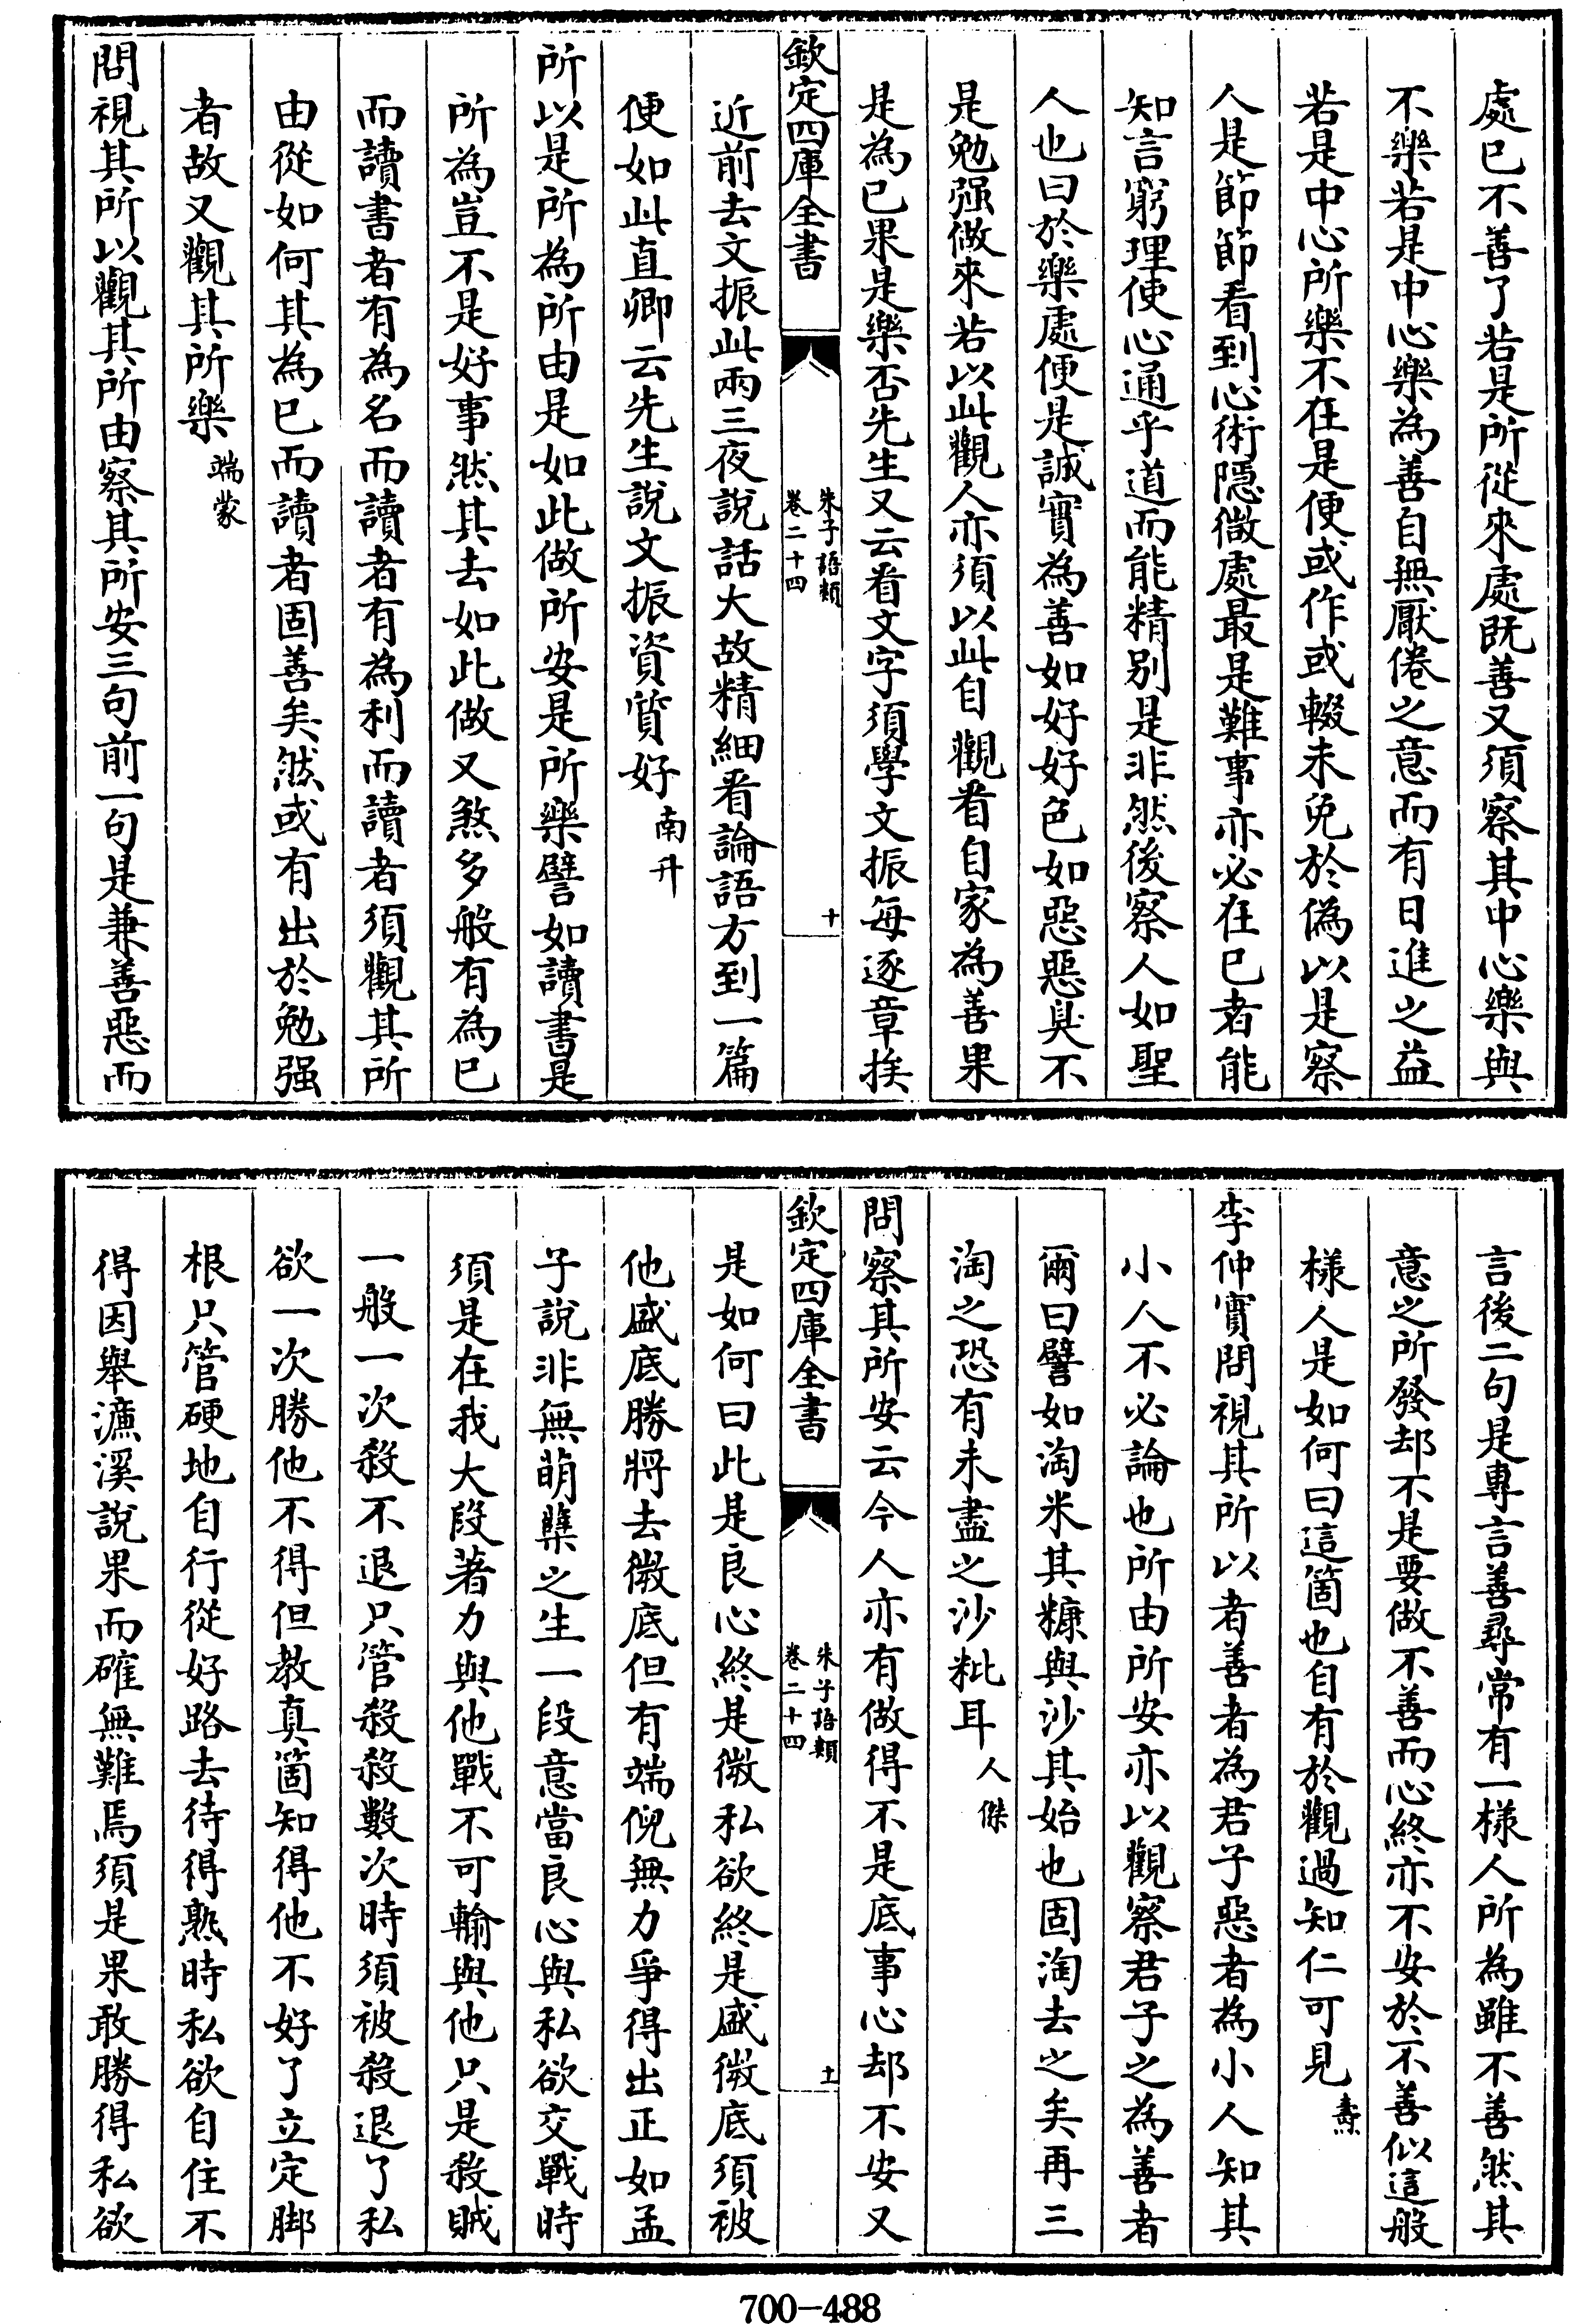 處已不善了若是所從來處既善又須察其中心樂與
不樂若是中心樂為善自無厭倦之意而有日進之益
若是中心所樂不在是便或作或輟未免於偽以是察
人是節節看到心術隱微處最是難事亦必在已者能
知言窮理使心通乎道而能精别是非然後察人如聖
人也曰於樂處便是誠實為善如好好色如惡惡臭不
是勉强做來若以此觀人亦須以此自觀看自家為善果
是為已果是樂否先生又云看文字須學文振每逐章挨
欽定四庫全書
朱子語類
卷二十四
十
近前去文振此兩三夜說話大故精細看論語方到一篇
便如此直卿云先生說文振資質好南升
所以是所為所由是如此做所安是所樂譬如讀書是
所為豈不是好事然其去如此做又煞多般有為已
而讀書者有為名而讀者有為利而讀者須觀其所
由從如何其為已而讀者固善矣然或有出於勉强
者故又觀其所樂端蒙
問視其所以觀其所由察其所安三句前一句是兼善惡而
言後二句是專言善尋常有一様人所為雖不善然其
意之所發却不是要做不善而心終亦不安於不善似這般
様人是如何曰這箇也自有於觀過知仁可見燾
李仲實問視其所以者善者為君子惡者為小人知其
小人不必論也所由所安亦以觀察君子之為善者
爾曰譬如淘米其糠與沙其始也固淘去之矣再三
淘之恐有未盡之沙粃耳人傑
問察其所安云今人亦有做得不是底事心却不安又
欽定四庫全書
朱子語類
卷二十四
十一
是如何曰此是良心終是微私欲終是盛微底須被
他盛底勝將去微底但有端倪無力爭得出正如孟
子說非無萌櫱之生一段意當良心與私欲交戰時
須是在我大段著力與他戰不可輸與他只是殺賊
一般一次殺不退只管殺殺數次時須被殺退了私
欲一次勝他不得但教真箇知得他不好了立定脚
根只管硬地自行從好路去待得熟時私欲自住不
得因舉濂溪說果而確無難焉須是果敢勝得私欲
700-488